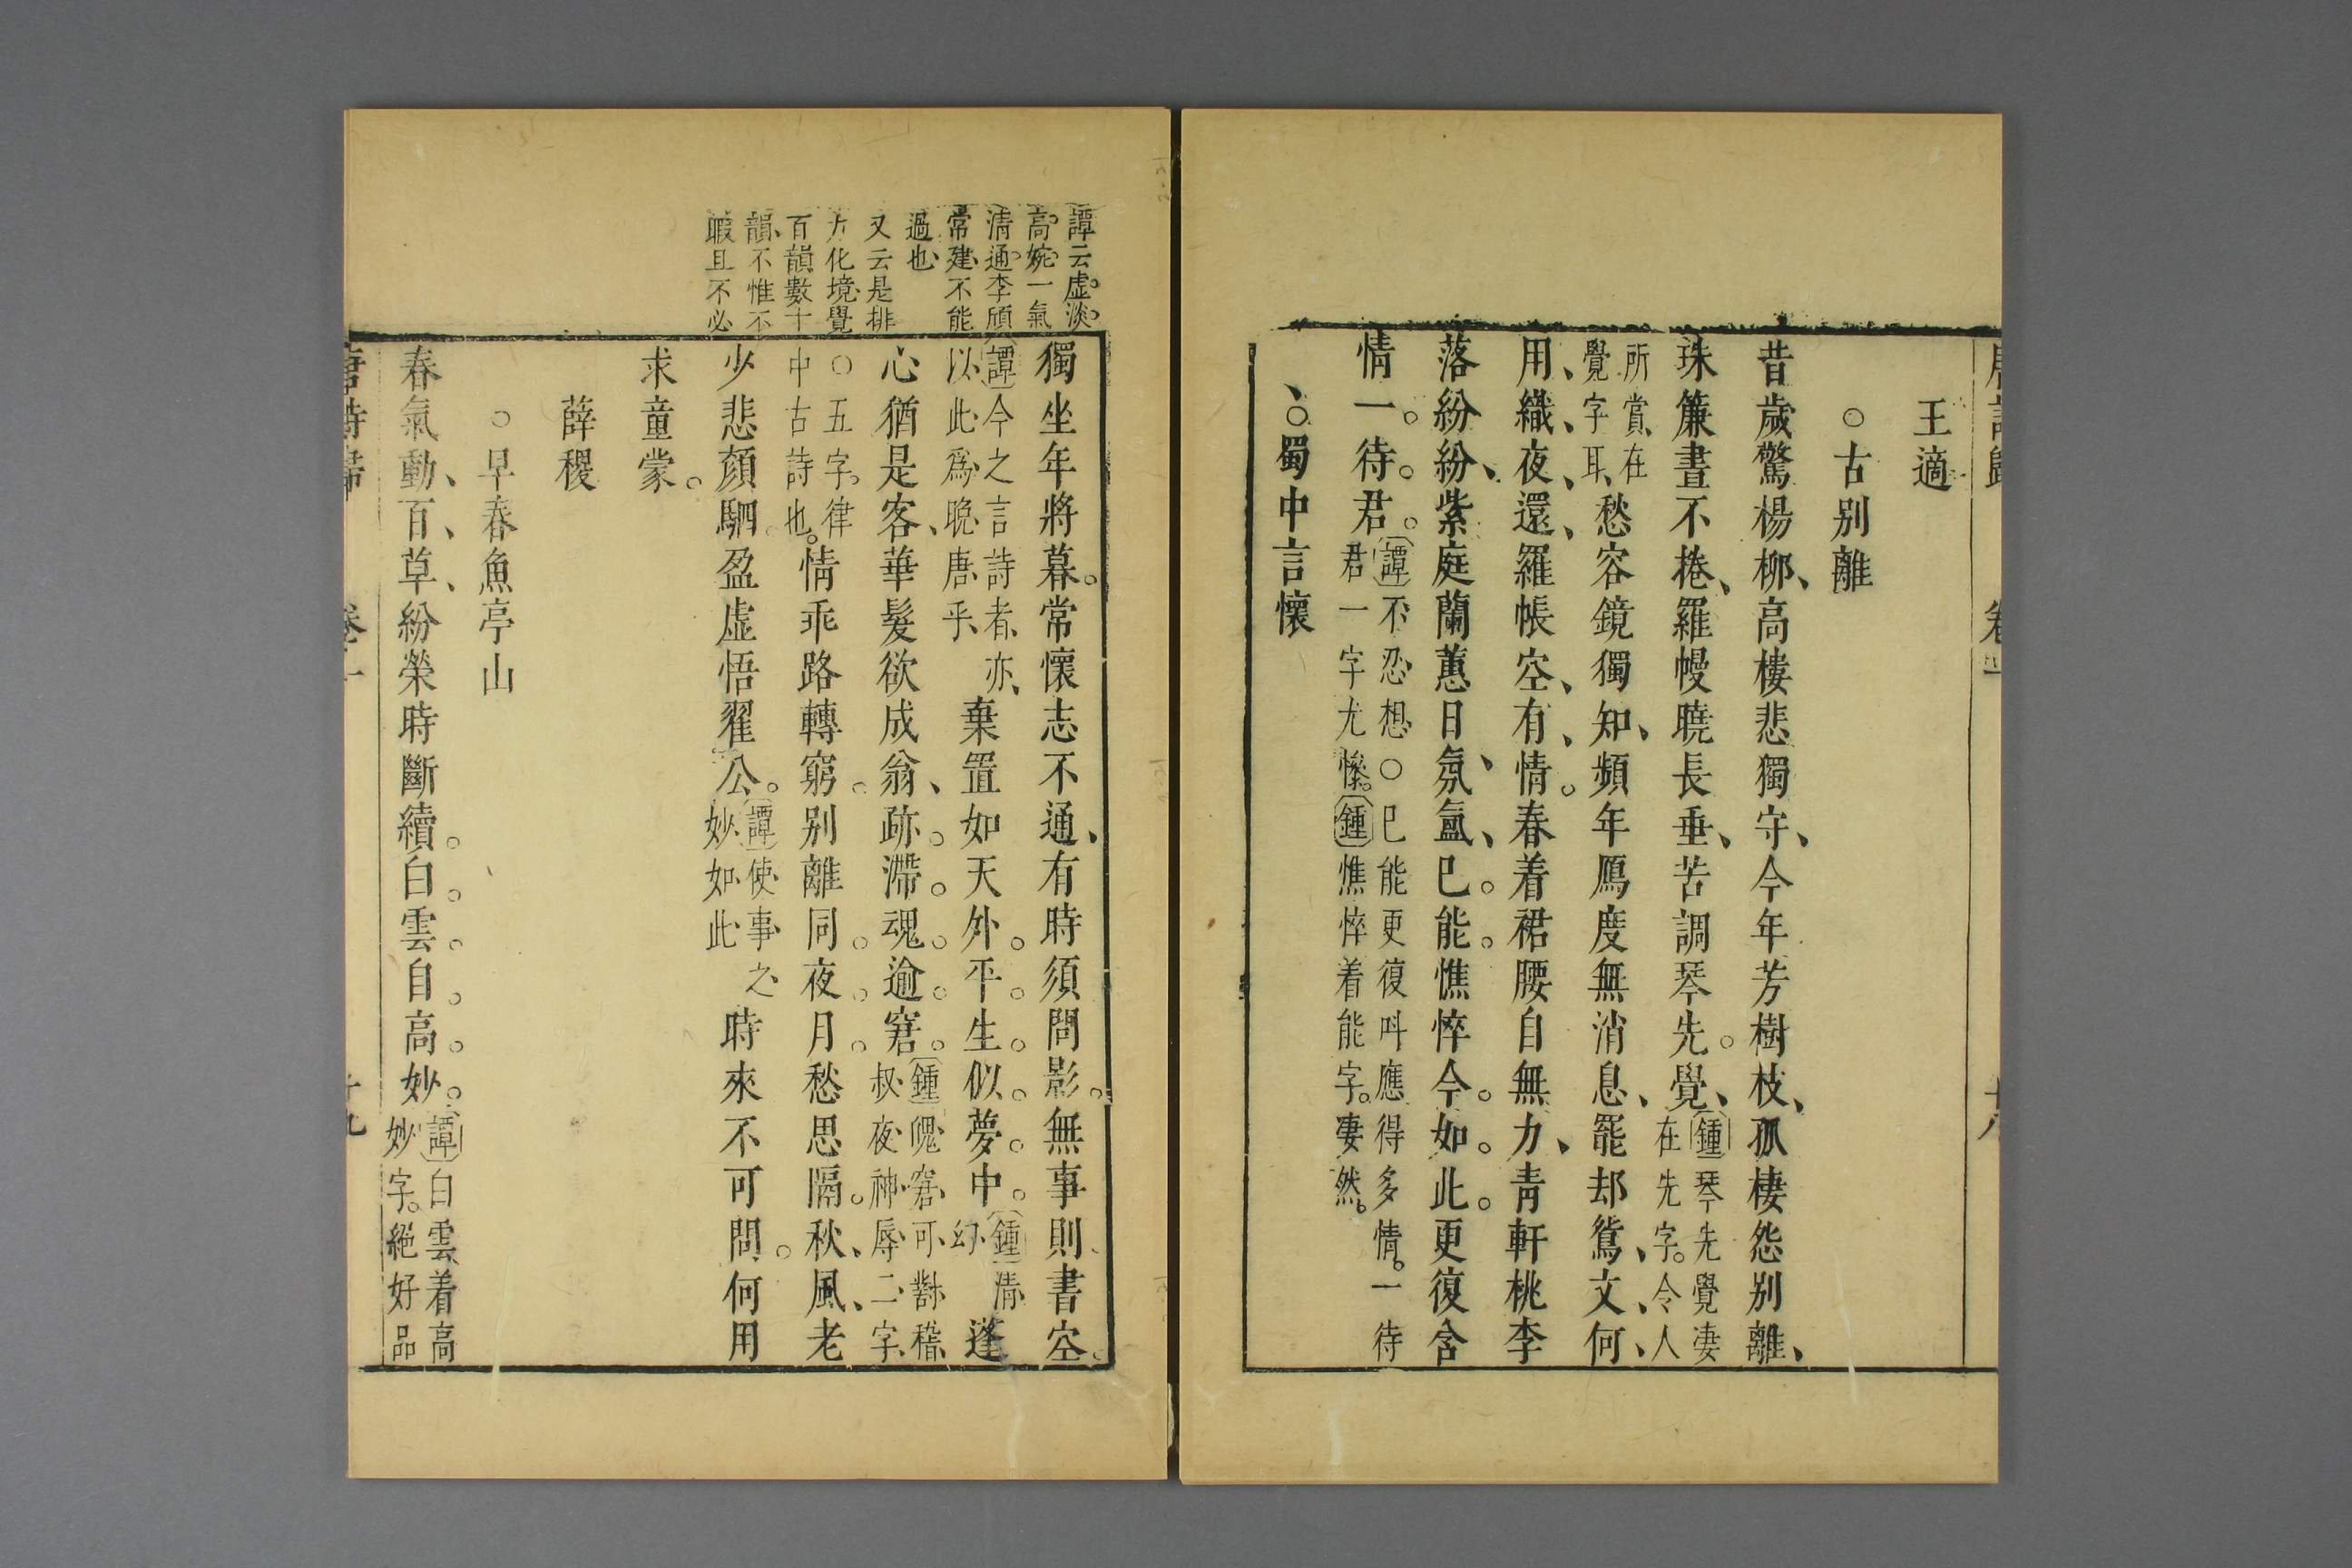 王適
○古別離
昔歲驚楊柳、高樓悲獨守、今年芳樹枝、孤棲怨別離、
珠簾晝不捲、羅幔曉長垂、苦調琴先。覺、鍾琴先覺凄在先字。令人
所賞、在覺字耳、愁容鏡獨知、頻年鴈度無消息、罷却鴛、文、何、
用、織、夜、還、羅帳空、有、情。春着裙腰自無力、靑軒桃李
落紛紛、紫庭蘭蕙日氛、氳、已。能。憔悴今。如。此。更復含
情一。待。君。譚不忍想○已能更復呌應得多情。一待君一字尤慘。鍾憔悴着能字。凄然。
、○蜀中言懷
譚云虛。淡。
高。婉。一氣
清通。李頎
常建、不能
過也、
又云是排
方化境、覺
百韻數十
韻、不惟不
暇且不必
獨坐年將暮。常懷志不通、有時須問影。無事則書空。
譚今之言詩者、亦、以此爲晩唐乎、棄置如天外。平。生。似。夢。中。鍾清幻逢
心猶是客、華髮欲成翁、跡。滯。魂。逾。窘。鍾魂窘可對嵇叔夜神辱二字
○五字。律中古詩也。情乖路轉窮。别離同。夜。月。愁思隔。秋、風、老
少悲顏駟。盈虛悟翟公。譚使事之妙如此時來不可問。何用
求童蒙。
薛稷
○早春魚亭山
春氣動、百、草、紛榮時斷續。白。雲。自。高。妙。譚白雲、着高妙字。絕好品
唐詩歸
卷十
十九